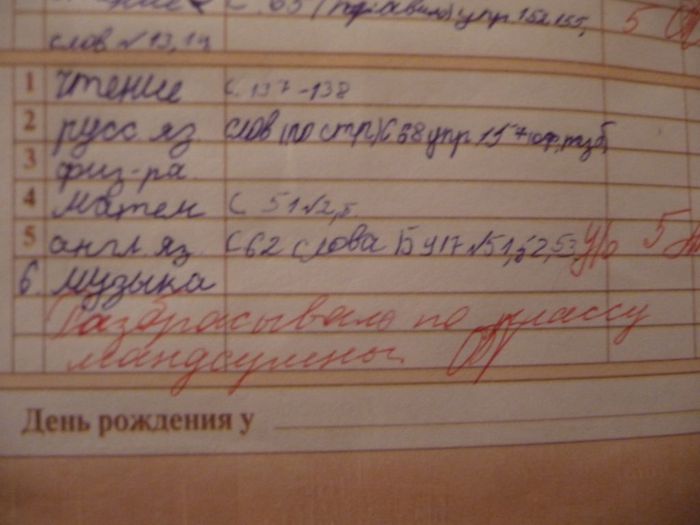 с. 65 (правило) упр 152, 155, 5
слов №13, 14
1 чтение с. 137-138
2 русс яз. слов (по стр) с 68 упр 157
3 физ-ра.
4 матем с 51 №2,
5 англ. яз. с 62 слова Б У17 №51, 52, 53 У/р 5
6. музыка
Разбрасывала по классу
мандарины.
День рождения у